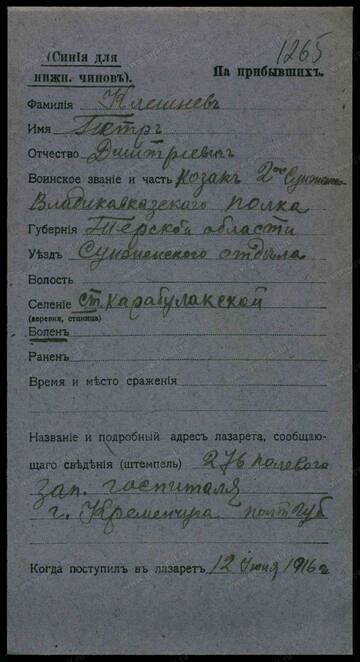 1265
(Синія для
нижн. чиновъ).
На прибывшихъ.
Фамилія Клешневъ
Имя Петръ
Отчество Дмитріевичъ
Воинское званіе и часть козакъ 2го
Владикавказскаго полка
Губернія Терской области
Уѣздъ Сунженскаго отдѣла
Волость
Селеніе ст. Карабулакской
(деревня, станица)
Боленъ
Раненъ
Время и мѣсто сраженія
Названіе и подробный адресъ лазарета, сообщаю-
щаго свѣдѣнія (штемпель) 276 полевого
зап. госпиталя
г. Кременчуга полт губ
Когда поступилъ въ лазаретъ 12 Июня 1916 г